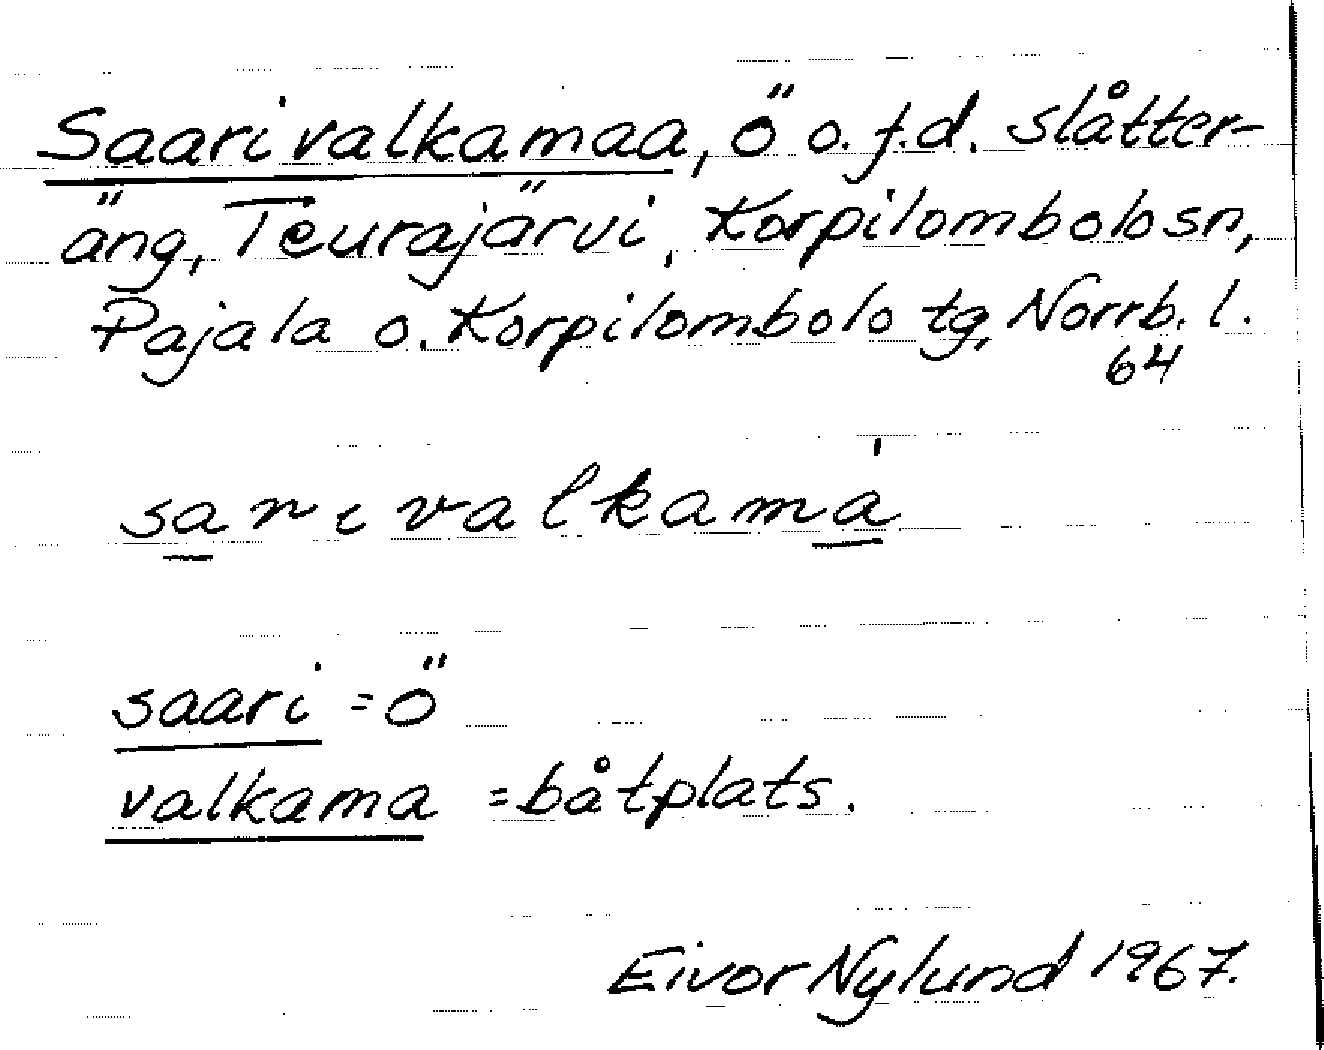 Saarivalkamaa, ö o. f.d. slåtter-
äng, Teurajärvi, Korpilombolo sn,
Pajala o. Korpilombolo tg, Norrb. l.
64
sarivalkama
saari = ö
valkama = båtplats.
Eivor Nylund 1967.